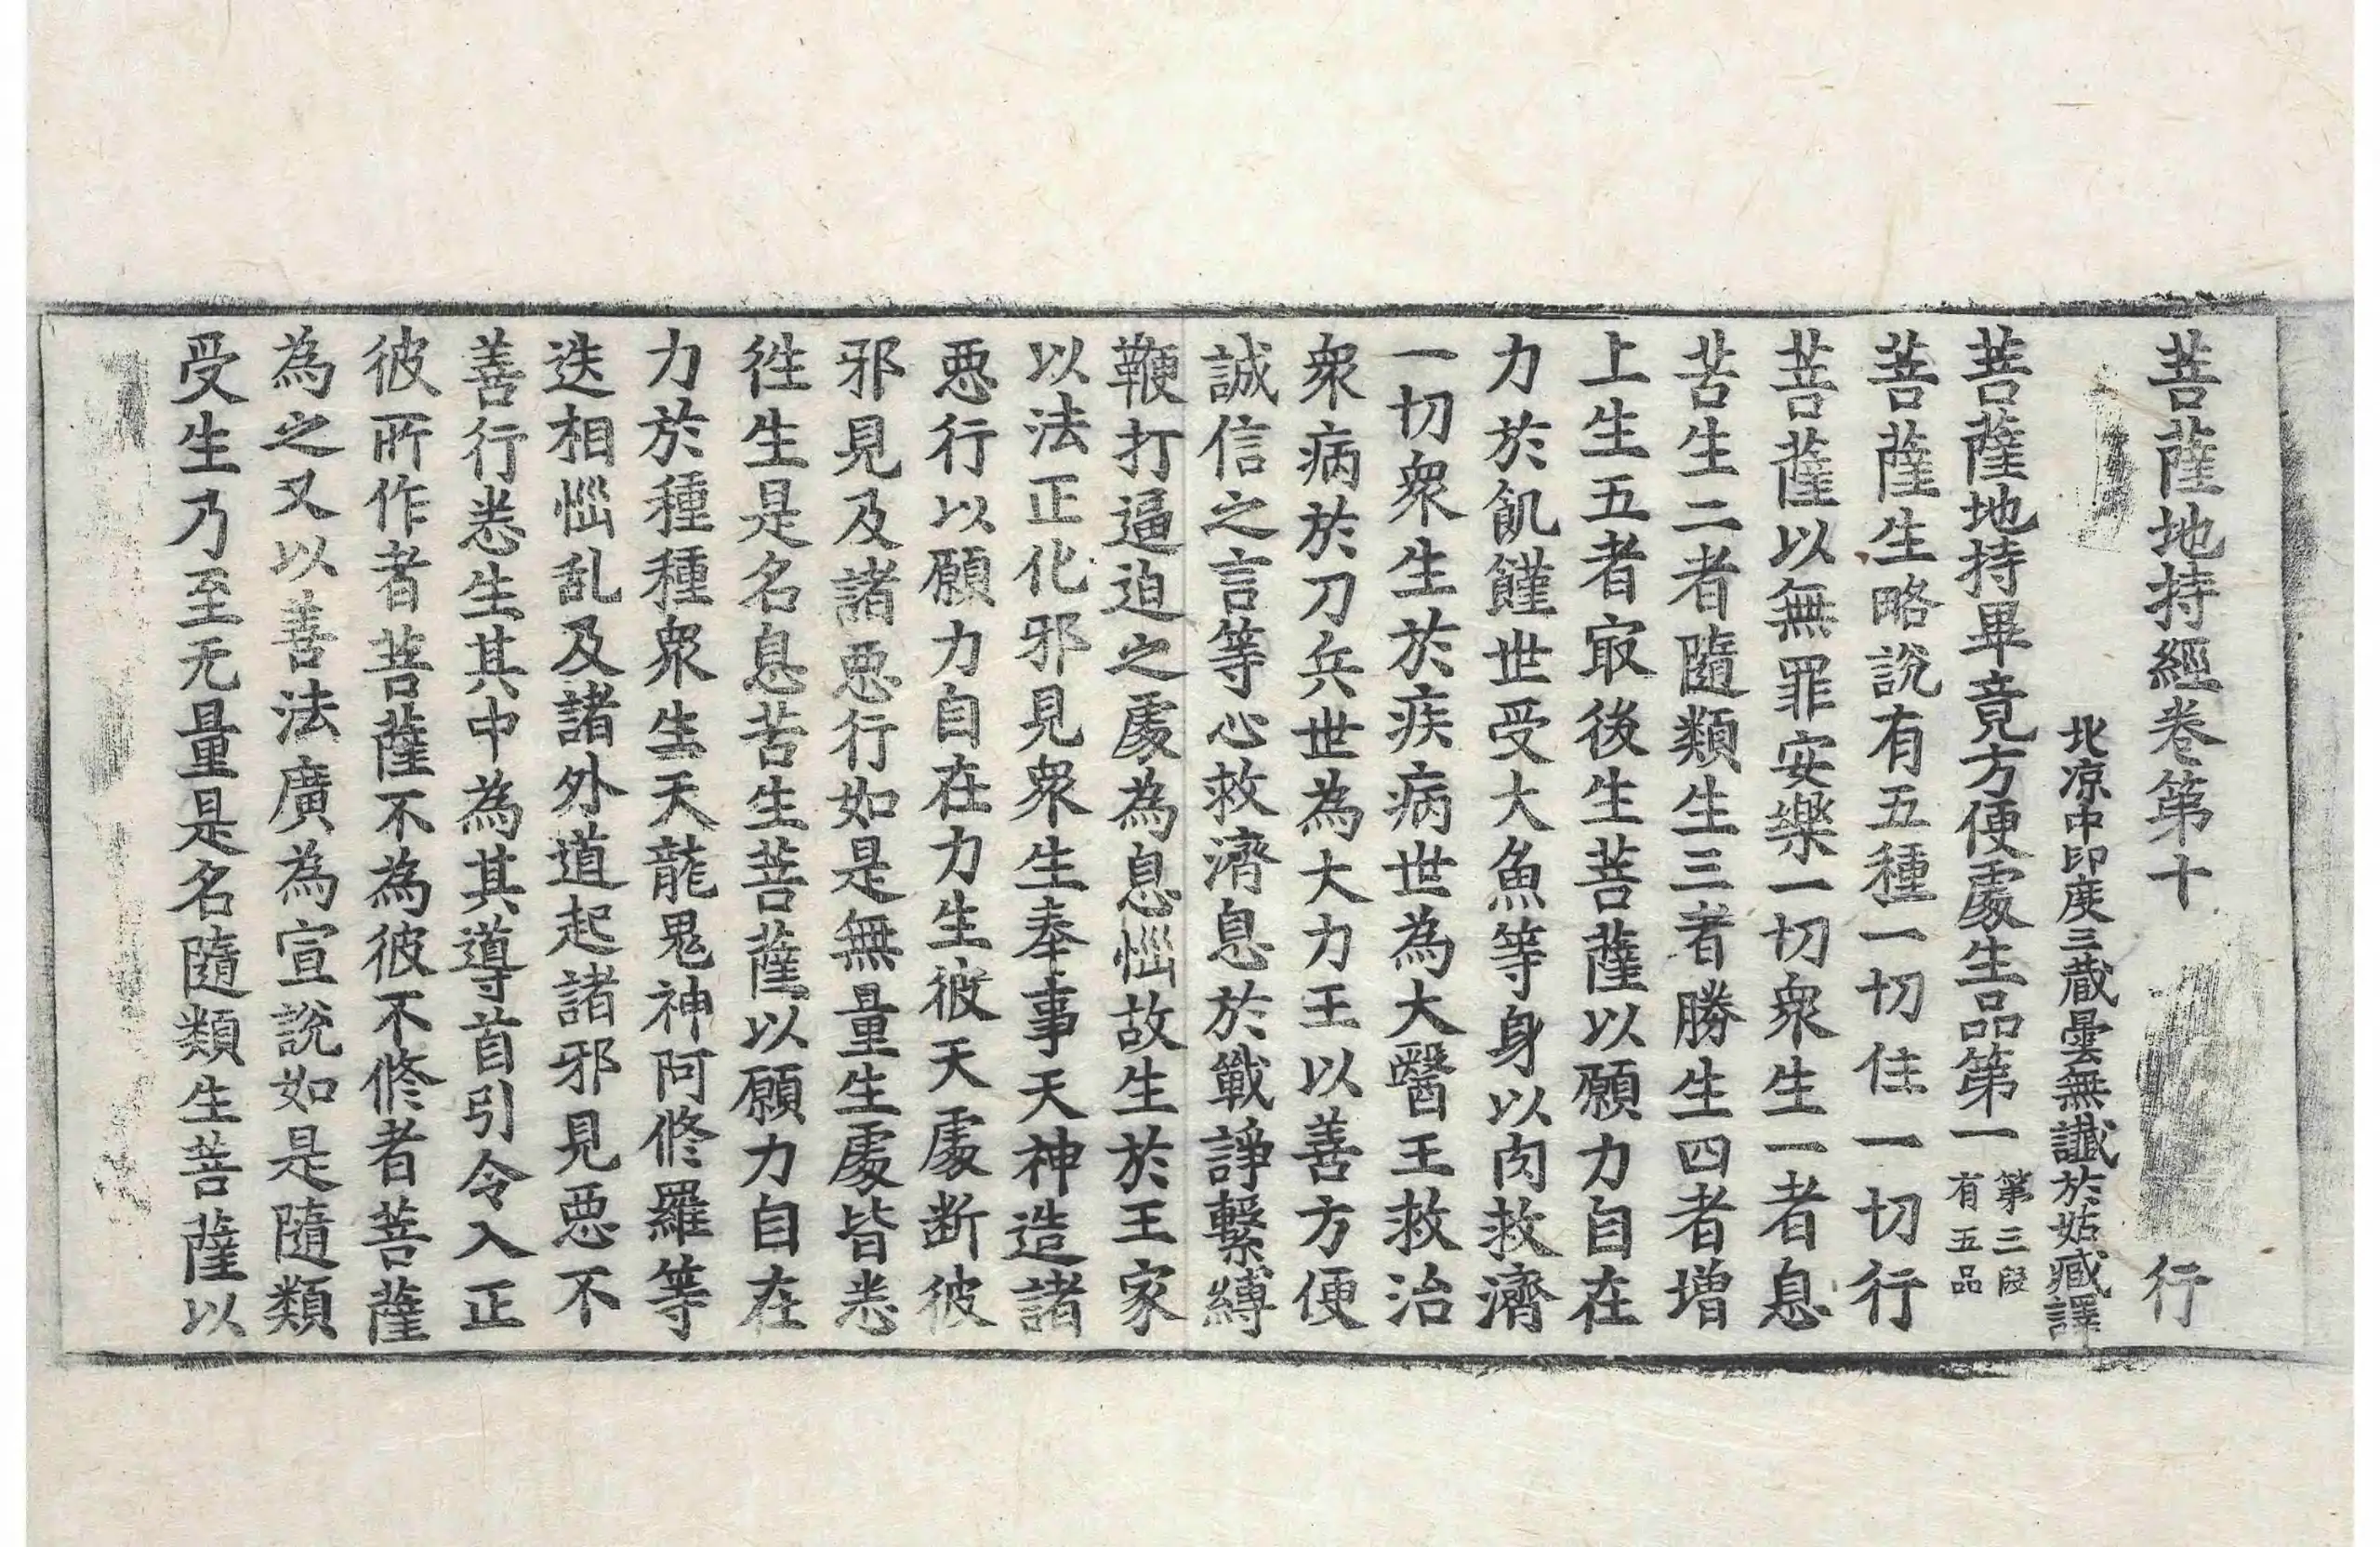 菩薩地持經卷第十　行
北涼中印度三藏曇無讖於姑臧譯
菩薩地持畢竟方便處生品第一 第三段有五品
菩薩生略說有五種一切住一切行
菩薩以無罪安樂一切衆生一者息
苦生二者隨類生三者勝生四者增
上生五者㝡後生菩薩以願力自在
力於飢饉世受大魚等身以肉救濟
一切衆生於疾病世為大醫王救治
衆病於刀兵世為大力王以善方便
誠信之言等心救濟息於戰諍繫縛
鞭打逼迫之處為息惱故生於王家
以法正化邪見衆生奉事天神造諸
惡行以願力自在力生彼天處断彼
邪見及諸惡行如是無量生處皆悉
往生是名息苦生菩薩以願力自在
力於種種衆生天龍鬼神阿修羅等
迭相惱乱及諸外道起諸邪見惡不
善行悉生其中為其導首引令入正
彼所作者菩薩不為彼不修者菩薩
為之又以善法廣為宣說如是隨類
受生乃至无量是名隨類生菩薩以